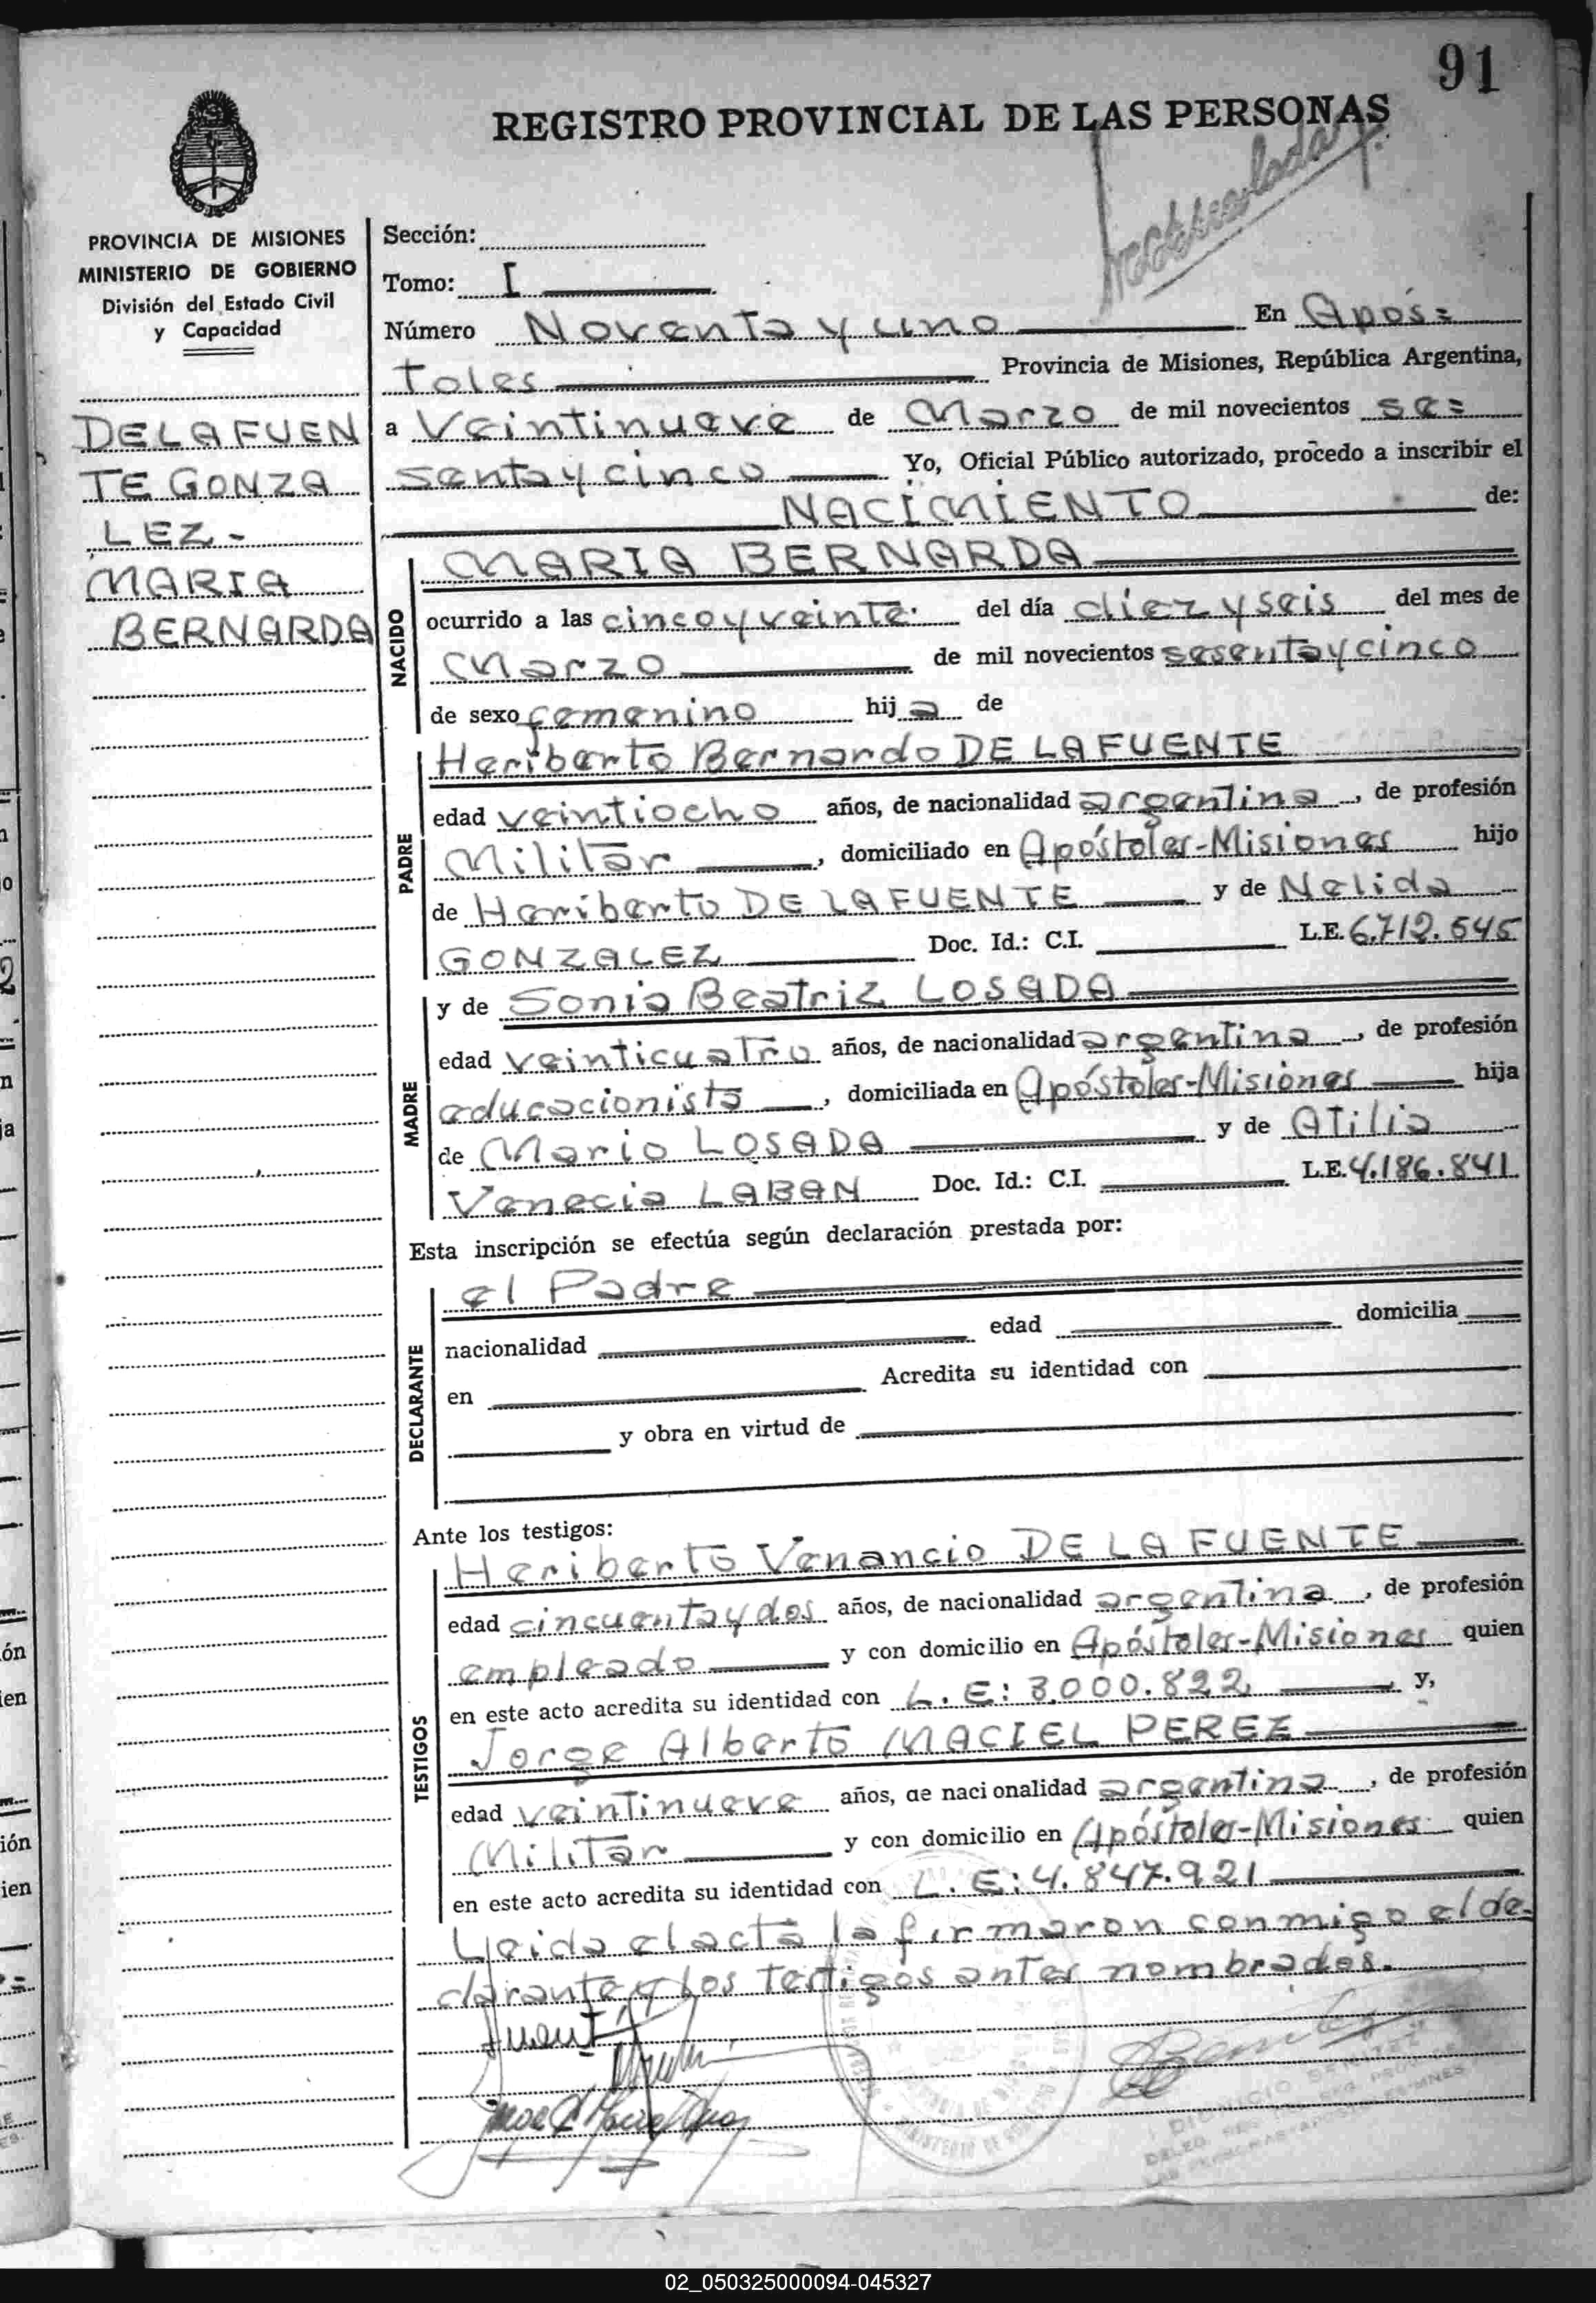 91
REGISTRO PROVINCIAL DE LAS PERSONAS
PROVINCIA DE MISIONES
MINISTERIO DE GOBIERNO
División del Estado Civil
y Capacidad
DE LA FUEN
TE GONZA
LEZ-
MARIA
BERNARDA
Sección:
Tomo: I
Número Noventa y uno En Após=
toles Provincia de Misiones, República Argentina,
a Veintinueve de Marzo de mil novecientos se=
senta y cinco Yo, Oficial Público autorizado, procedo a inscribir el
NACIMIENTO de:
NACIDO
MARIA BERNARDA
ocurrido a las cinco y veinte. del día diez y seis del mes de
Marzo de mil novecientos sesenta y cinco
de sexo femenino hija de
PADRE
Heriberto Bernardo DE LA FUENTE
edad veintiocho años, de nacionalidad argentina, de profesión
Militar, domiciliado en Apóstoles-Misiones hijo
de Heriberto DE LA FUENTE y de Nelida
GONZALEZ Doc. Id.: C.I. L.E. 6.712.545
MADRE
y de Sonia Beatriz LOSADA
edad veinticuatro años, de nacionalidad argentina, de profesión
educacionista, domiciliada en Apóstoles-Misiones hija
de Mario LOSADA y de Atilia
Venecia LABAN Doc. Id.: C.I. L.E. 4.186.841
Esta inscripción se efectúa según declaración prestada por:
DECLARANTE
el Padre
nacionalidad edad domicilia
en Acredita su identidad con
y obra en virtud de
Ante los testigos:
TESTIGOS
Heriberto Venancio DE LA FUENTE
edad cincuenta y dos años, de nacionalidad argentina, de profesión
empleado y con domicilio en Apóstoles-Misiones quien
en este acto acredita su identidad con L.E: 3.000.822, y,
Jorge Alberto MACIEL PEREZ
edad veintinueve años, de nacionalidad argentina, de profesión
Militar y con domicilio en Apóstoles-Misiones quien
en este acto acredita su identidad con L.E: 4.847.921
Leida el acta la firmaron conmigo el de
clarante y los testigos antes nombrados.
02_050325000094-045327